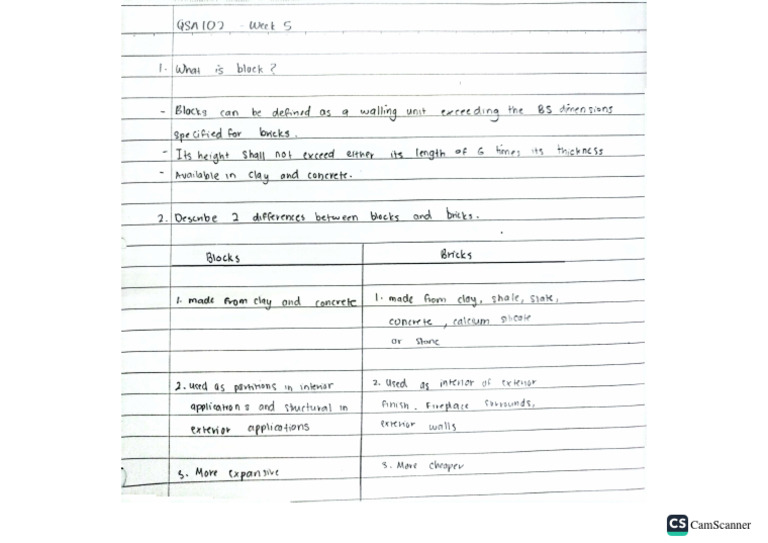 QSA102 - Week 5
1. What is block?
- Blocks can be defined as a walling unit exceeding the BS dimensions
specified for bricks.
- Its height shall not exceed either its length of 6 times its thickness
- Available in clay and concrete.
2. Describe 2 differences between blocks and bricks.
Blocks
Bricks
1. made from clay and concrete
1. made from clay, shale, slate,
concrete, calcium silicate
or stone
2. used as partitions in interior
applications and structural in
exterior applications
2. Used as interior of exterior
finish. Fireplace surrounds,
exterior walls
3. More expansive
3. More cheaper
CS CamScanner